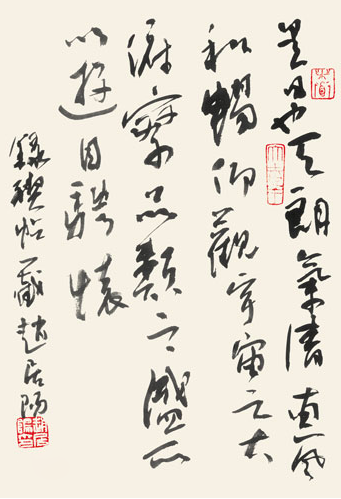 是日也天朗氣清惠風
和暢仰觀宇宙之大
俯察品類之盛所
以遊目騁懷
錄禊帖一截趙居陽